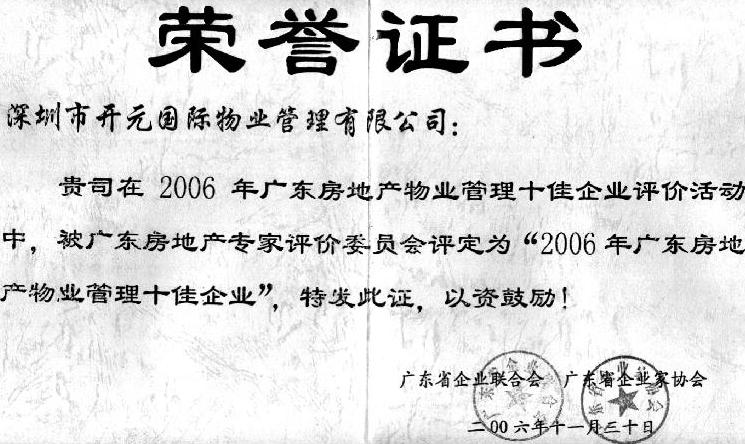 荣誉证书
深圳市开元国际物业管理有限公司：
贵司在 2006 年广东房地产物业管理十佳企业评价活动
中，被广东房地产专家评价委员会评定为“2006年广东房地
产物业管理十佳企业”，特发此证，以资鼓励！
广东省企业联合会 广东省企业家协会
二00六年十一月三十日